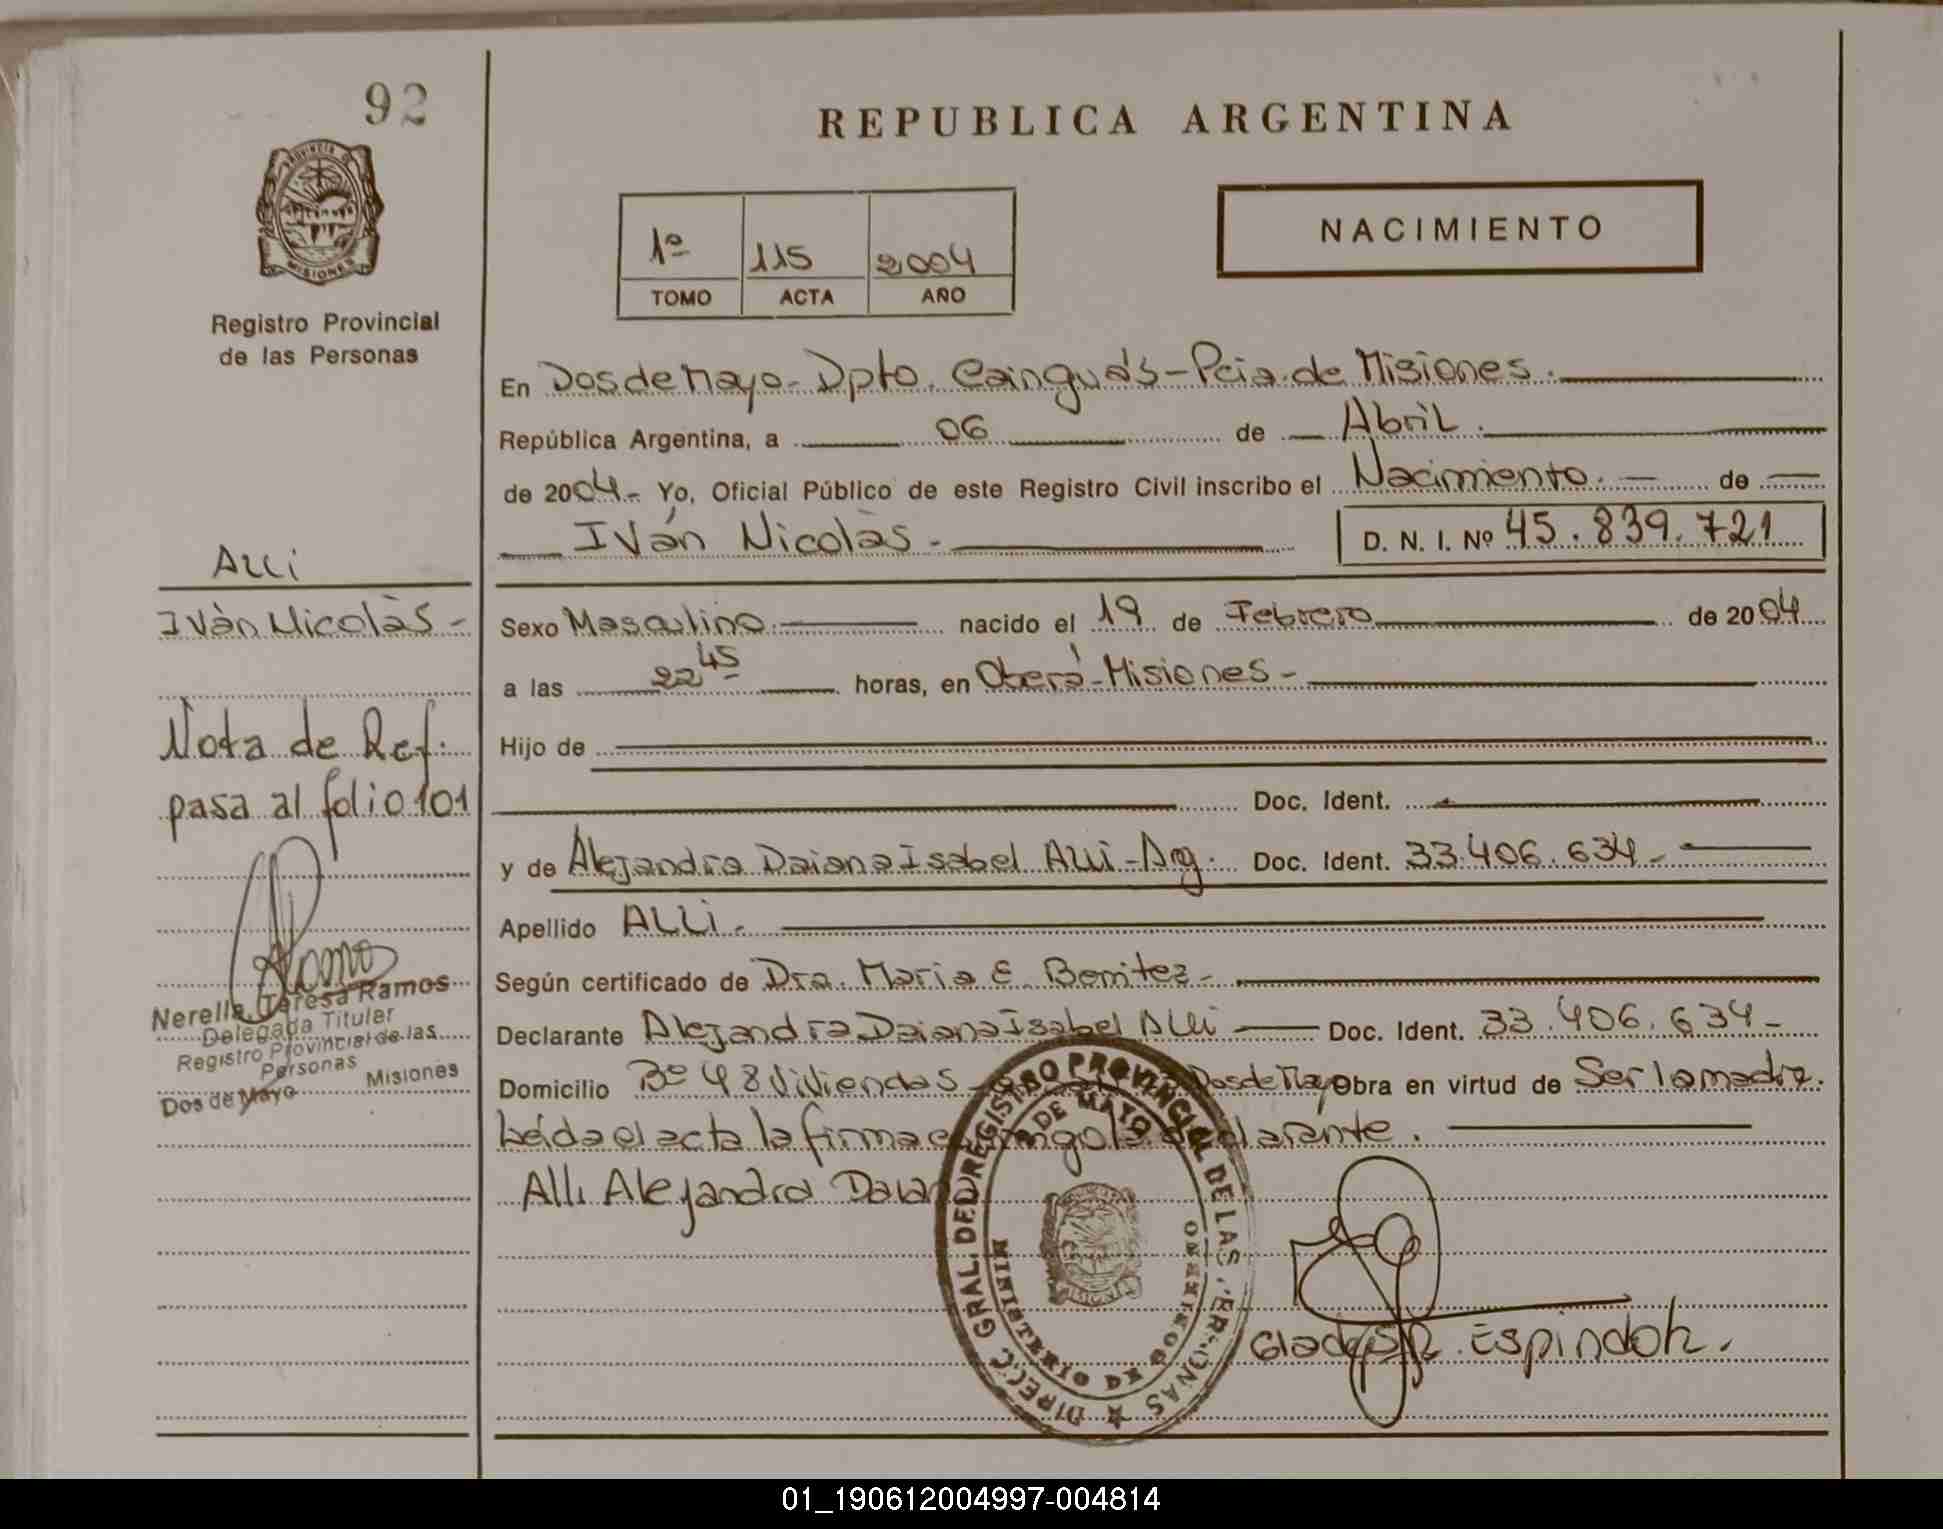 92
REPUBLICA ARGENTINA
PROVINCIA D
MISIONES
Registro Provincial
de las Personas
1º 115 2004
TOMO ACTA AÑO
NACIMIENTO
En Dos de Mayo - Dpto. Cainguás - Pcia. de Misiones.
República Argentina, a 06 de Abril.
de 2004.- Yo, Oficial Público de este Registro Civil inscribo el Nacimiento. de
Iván Nicolás - D. N. I. Nº 45.839.721
Alli
Iván Nicolás -
Nota de Ref.
pasa al folio 101
Ramos
Nerella Teresa Ramos
Delegada Titular
Registro Provincial de las
Personas
Dos de Mayo Misiones
Sexo Masculino. nacido el 19 de Febrero de 2004
a las 22 45 horas, en Oberá - Misiones -
Hijo de
Doc. Ident.
y de Alejandra Daiana Isabel Alli - Arg. Doc. Ident. 33.406.634 -
Apellido ALLi.
Según certificado de Dra. Maria E. Benitez -
Declarante Alejandra Daiana Isabel Alli Doc. Ident. 33.406.634 -
Domicilio Bº 48 Viviendas - Dos de Mayo Obra en virtud de Ser la madre.
Leída el acta la firma conmigo la declarante.
Alli Alejandra Daiana
DIRECC. GRAL. DEL REGISTRO PROVINCIAL DE LAS PERSONAS
2 DE MAYO
MINISTERIO DE GOBIERNO
MISIONES
Gladys R. Espindola.
01_190612004997-004814